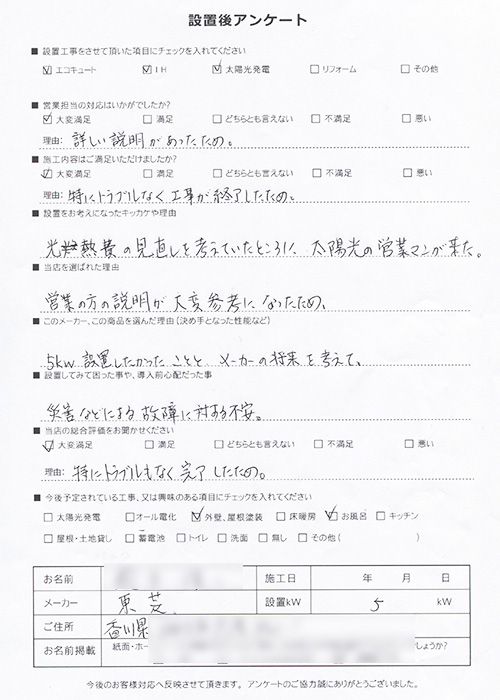 設置後アンケート
■ 設置工事をさせて頂いた項目にチェックを入れてください
☑ エコキュート ☑ IH ☑ 太陽光発電 □ リフォーム □ その他
■ 営業担当の対応はいかがでしたか?
☑ 大変満足 □ 満足 □ どちらとも言えない □ 不満足 □ 悪い
理由: 詳しい説明があったため。
■ 施工内容はご満足いただけましたか?
☑ 大変満足 □ 満足 □ どちらとも言えない □ 不満足 □ 悪い
理由: 特にトラブルなく工事が終了したため。
■ 設置をお考えになったキッカケや理由
光熱費の見直しを考えていたところに 太陽光の営業マンが来た。
■ 当店を選ばれた理由
営業の方の説明が大変参考になったため、
■ このメーカー、この商品を選んだ理由(決め手となった性能など)
5kw 設置したかったことと、メーカーの将来を考えて、
■ 設置してみて困った事や、導入前心配だった事
災害などによる故障に対する不安。
■ 当店の総合評価をお聞かせください
☑ 大変満足 □ 満足 □ どちらとも言えない □ 不満足 □ 悪い
理由: 特にトラブルもなく完了したため。
■ 今後予定されている工事、又は興味のある項目にチェックを入れてください
□ 太陽光発電 □ オール電化 ☑ 外壁、屋根塗装 □ 床暖房 ☑ お風呂 □ キッチン
□ 屋根・土地貸し □ 蓄電池 □ トイレ □ 洗面 □ 無し □ その他( )
お名前 施工日 年 月 日
メーカー 東芝 設置kW 5 kW
ご住所 香川県
お名前掲載 紙面・ホー しょうか?
今後のお客様対応へ反映させて頂きます。 アンケートのご協力誠にありがとうございました。